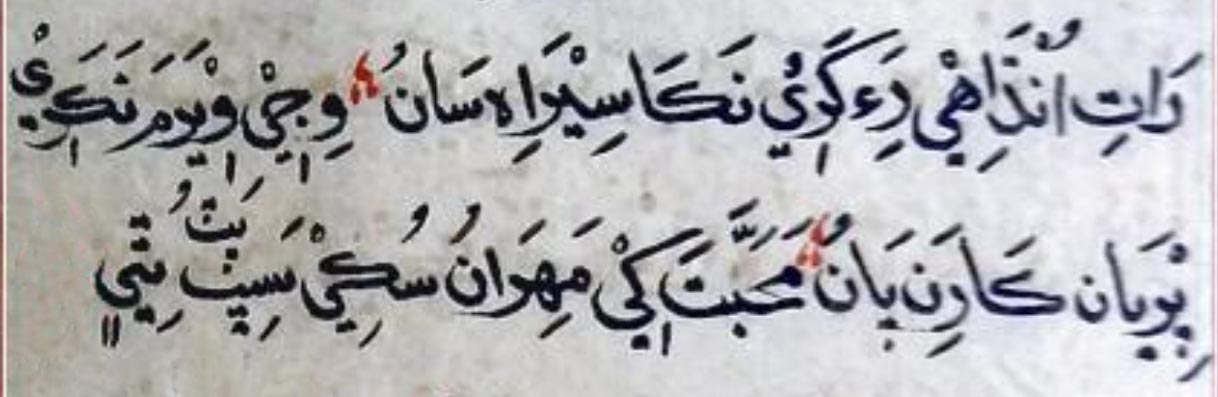 رَاتِ اُنْدَاهِيْ دَءِ كَوِيْ نَكَا سِيْرَاهِ سَانُ “ وِجِيْ وِيْوَمَ نَكَرِيْ
پِرِيَان كَارَنِ پَانُ “ مَحَبَّتَ كِيْ مِهَرَانُ سُكِيْ سَڀِيٖ پَٽُ ٿِيِيْ